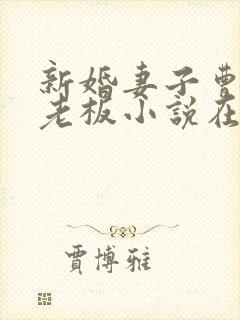 新婚妻子曹
老板小說在
賈博雅